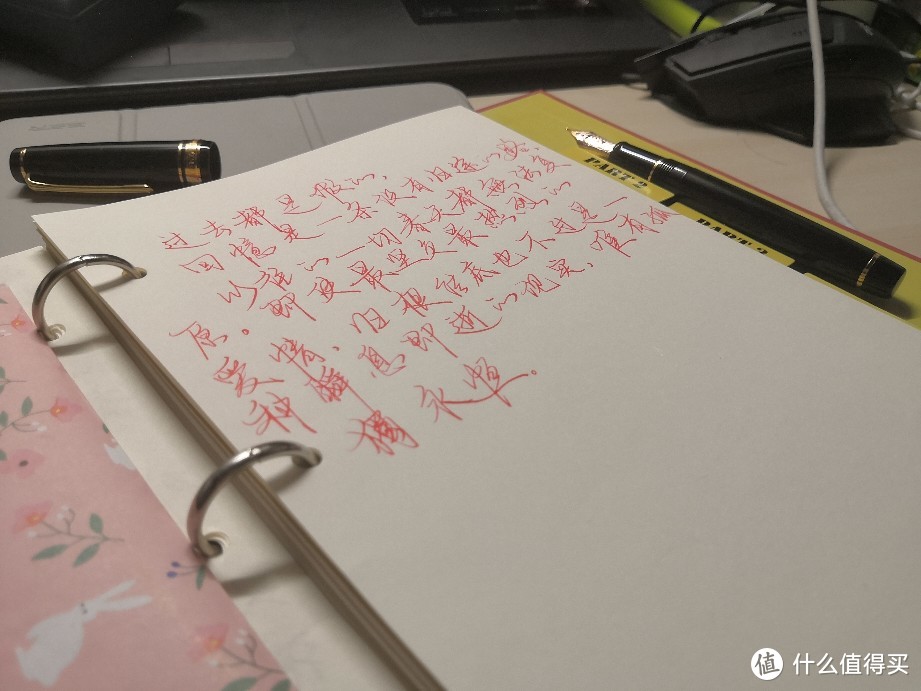 过去都是假的，
回憶是一条没有归途的路，
以往的一切春天都無法复
原。即使最坚贞最狂热的
爱情，归根结底也不过是一
种瞬息即逝的现实，唯有孤
獨永恒。
PART 2
值 什么值得买